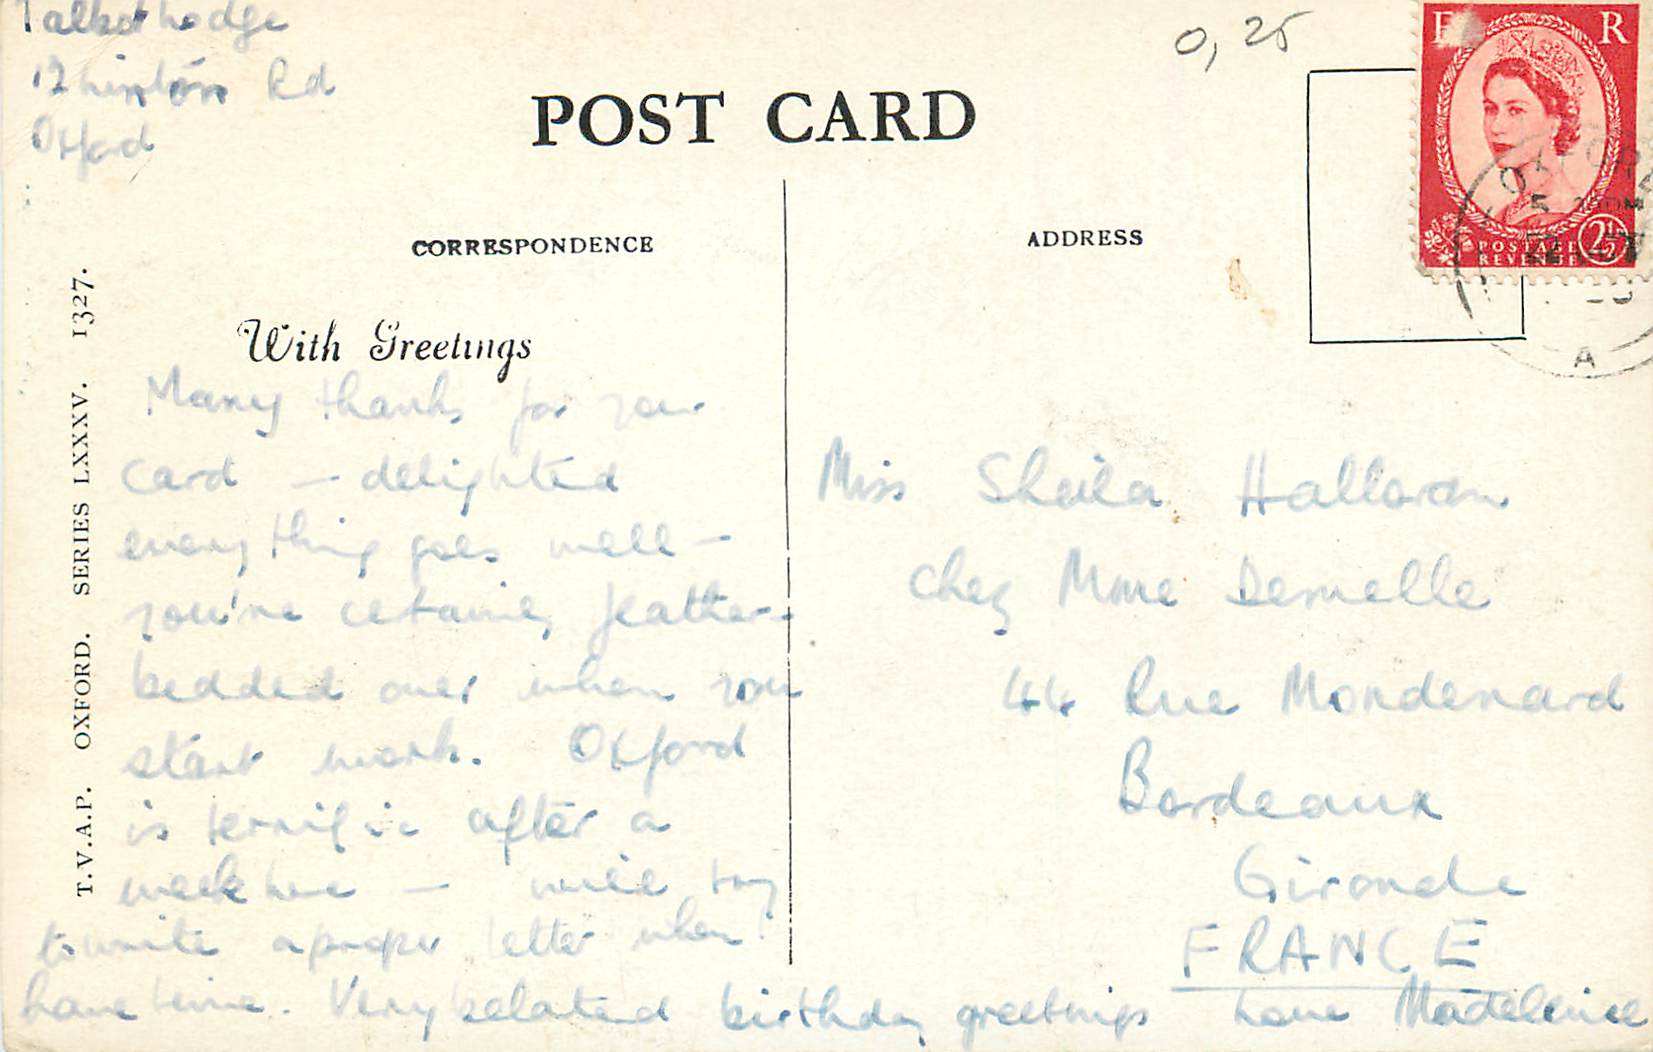 Talbot Lodge
12 Linton Rd
Oxford
0,25
E R
POSTAGE 2½
REVENUE
OXFORD
A
POST CARD
CORRESPONDENCE
ADDRESS
T.V.A.P. OXFORD. SERIES LXXXV. 1327.
With Greetings
Many thanks for your
card — delighted
everything goes well —
you're certainly feather-
bedded over when you
start work. Oxford
is terrific after a
week here — will try
to write a proper letter when I
have time. Very belated birthday greetings Love Madeleine
Miss Sheila Halloran
chez Mme Demelle
44 Rue Mondenard
Bordeaux
Gironde
FRANCE